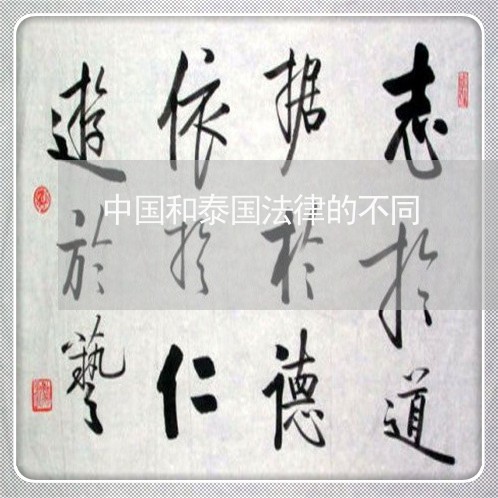 志於道
据於德
依於仁
遊於藝
中国和泰国法律的不同